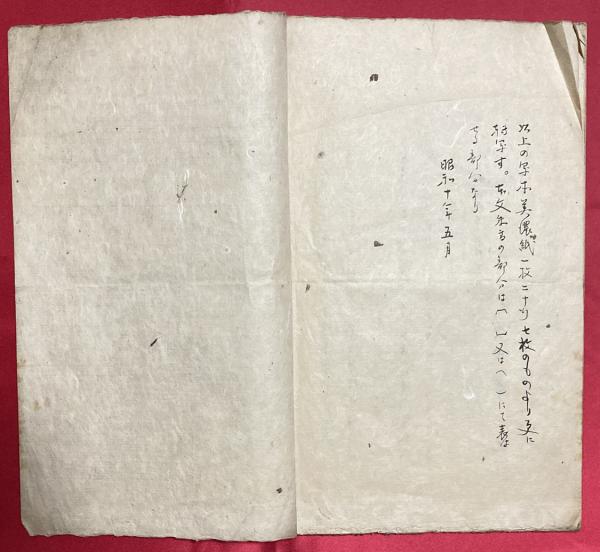 以上の写本美濃紙一枚二十行七枚のものより更に
転写す。本文朱書の部分は「 」又は( )にて表は
せる部分なり
昭和十年五月